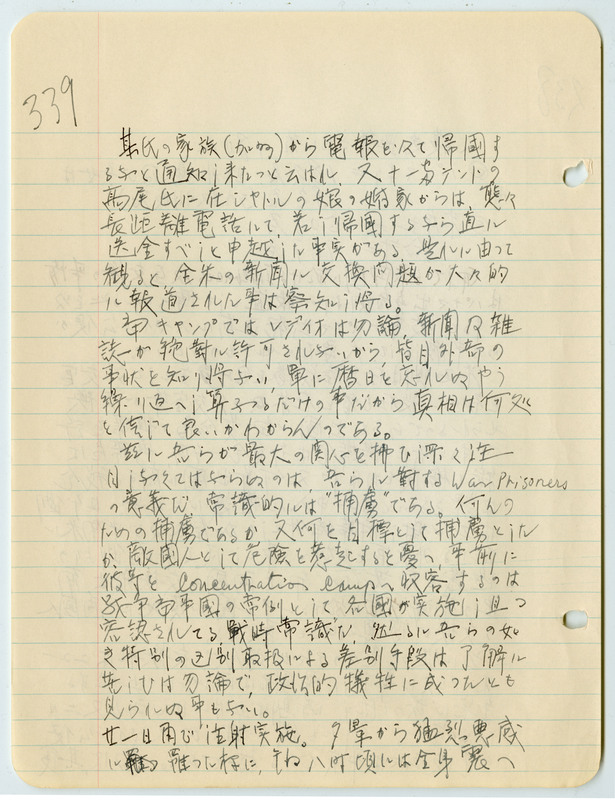 339
某氏の家族(加ﾅﾀﾞ)から電報を以て帰國す
るなと通知し来たつと云はれ、又十一号テントの
高尾氏に在シャトルの娘の婚家からは、態々
長距離電話にて、若し帰國するなら直に
送金すべしと申越した事実がある。是れに由って
観ると、全米の新聞に交換問題が大々的
に報道された事は察知し得る。
当キャンプではレデイオは勿論、新聞及雑
誌が絶對に許可されないから、皆目外部の
事状を知り得ない、單に暦日を忘れぬやう
繰り返へし算するだけの事だから真相は何処
を信じて良いかわからんのである。
茲に吾らが最大の関心を拂ひ深く注
目しなくてはならぬのは、吾らに對する War Prisoners
の意義だ。常識的には"捕虜"である。何んの
ための捕虜であるか、又何を目標として捕虜とした
か、敵國人として危険を惹起すると憂へ、事前に
彼等を Concentration Camp へ収容するのは
戦争当事國の常例として各國が実施し且つ
容認されてる戦時常識だ、然るに吾らの如
き特別の区別取扱による差別手段は了解に
苦しむは勿論で、政治的犠牲に成つたとも
見られぬ事もない。
廿一日毎で注射実施。夕暈から猛烈悪感
に 罹つた様に、それ八時頃には全身震へ